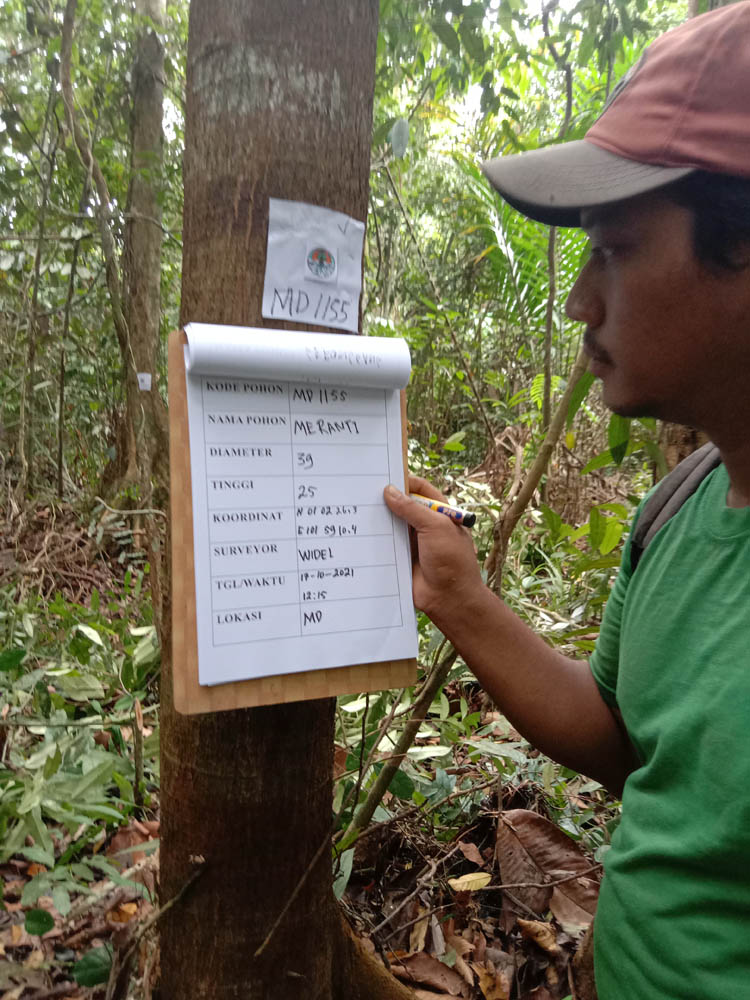 MD 1155
KODE POHON MD 1155
NAMA POHON MERANTI
DIAMETER 39
TINGGI 25
KOORDINAT N 01 02 26.3
E 101 59 10.4
SURVEYOR WIDEL
TGL/WAKTU 17-10-2021
12:15
LOKASI MD